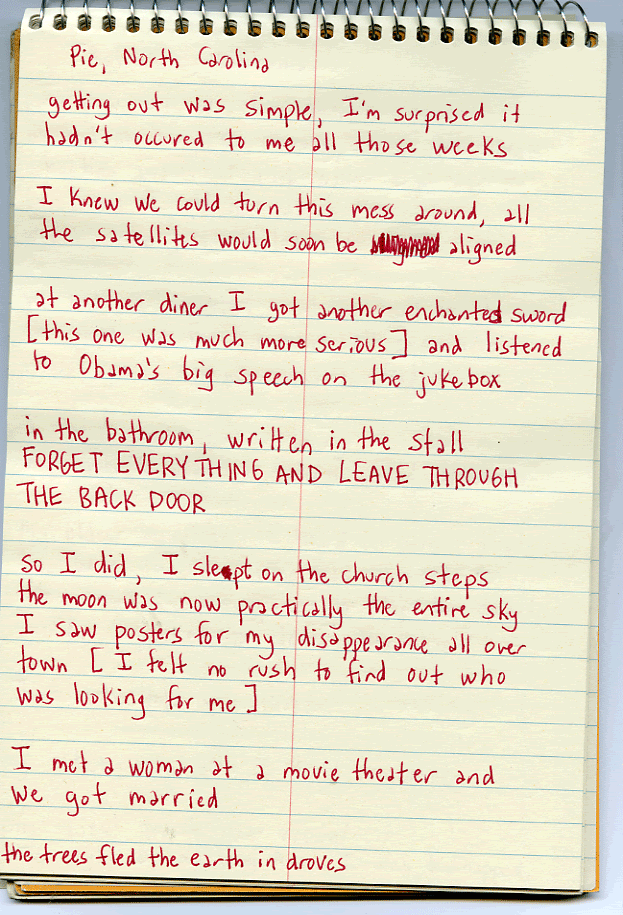 Pie, North Carolina
getting out was simple, I'm surprised it
hadn't occured to me all those weeks
I knew we could turn this mess around, all
the satellites would soon be aligned
at another diner I got another enchanted sword
[this one was much more serious] and listened
to Obama's big speech on the jukebox
in the bathroom, written in the stall
FORGET EVERYTHING AND LEAVE THROUGH
THE BACK DOOR
so I did, I slept on the church steps
the moon was now practically the entire sky
I saw posters for my disappearance all over
town [I felt no rush to find out who
was looking for me]
I met a woman at a movie theater and
we got married
the trees fled the earth in droves